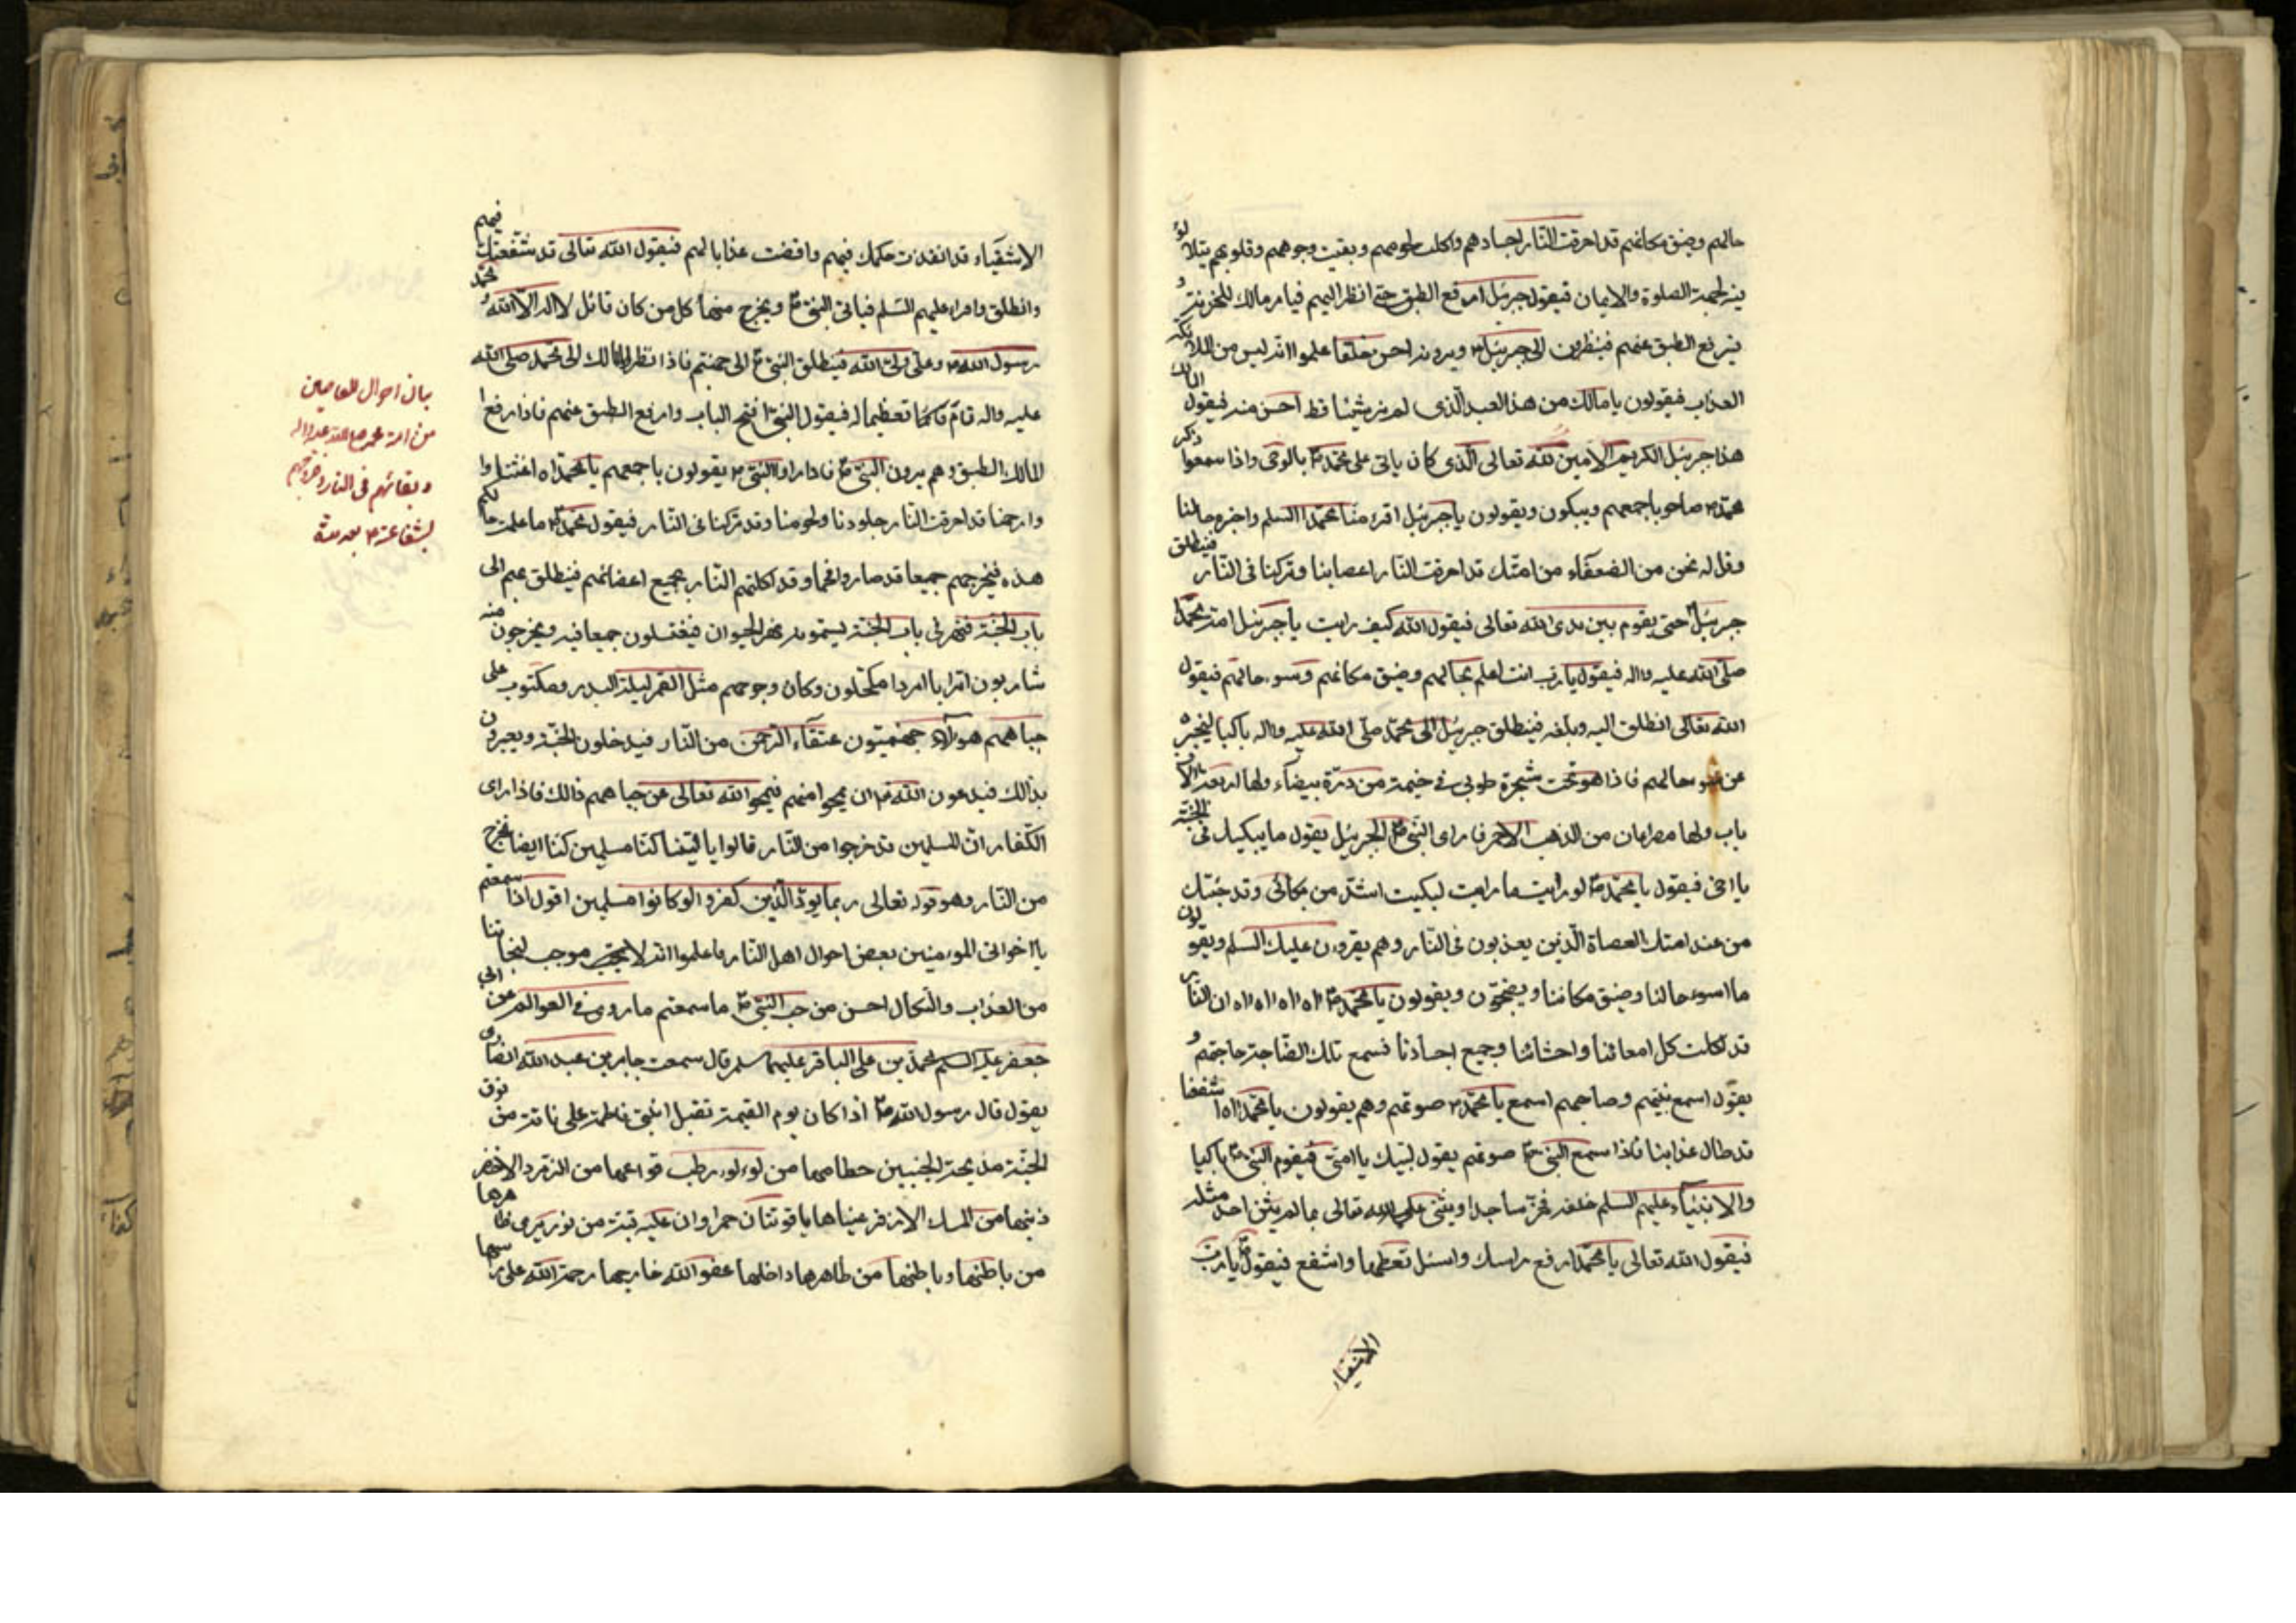 حالهم وضيق مكانهم قد احرقت النار اجسادهم واكلت لحومهم وبقيت وجوههم وقلوبهم يتلالؤ
فيقول جبرئيل ارفع الطبق حتى انظر اليهم فيامر مالك للخزنة و
يرفع الطبق عنهم فينظرون الى جبرئيل ويرونه احسن خلقا علموا انه ليس من ملائكة
العذاب فيقولون يا مالك من هذا العبد الذى لم نر شيئا قط احسن منه فيقول المالك
هذا جبرئيل الكريم الامين لله تعالى الذى كان ياتى على محمد ص بالوحى واذا سمعوا ذكر
محمد ص صاحو باجمعهم ويبكون ويقولون يا جبرئيل اقرء منا محمدا السلم واخبره حالنا
وقل له نحن من الضعفاء من امتك قد احرقت النار اعصابنا وتركنا فى النار فينطلق
جبرئيل حتى يقوم بين يدى الله تعالى فيقول الله كيف رايت يا جبرئيل امة محمد
صلى الله عليه واله فيقول يا رب انت اعلم بحالهم وضيق مكانهم وسوء حالهم فيقول
الله تعالى انطلق اليه وبلغه فينطلق جبرئيل الى محمد صلى الله عليه واله باكيا ليخبره
عن سوء حالهم فاذا هو تحت شجرة طوبى فى خيمة من درة بيضاء ولها اربعة الاف
باب ولها مصراعان من الذهب الاحمر فاراى النبى ص الجبرئيل يقول ما يبكيك فى الجنة
يا اخى فيقول يا محمد ص لو رايت ما رايت لبكيت اشد من بكائى وقد جئتك
من عند امتك العصاة الذين يعذبون فى النار وهم يقرون عليك السلم ويقولون
ما اسوء حالنا وضيق مكاننا ويضجون ويقولون يا محمد ص اه اه اه اه اه ان النار
قد اكلت كل امعائنا واحشائنا وجميع اجسادنا
يقول اسمع نبيهم وصاحبهم اسمع يا محمد ص صوتهم وهم يقولون يا محمداه اشفعنا
قد طال عذابنا فاذا سمع النبى ص صوتهم يقول لبيك يا امتى فيقوم النبى ص باكيا
والانبياء عليهم السلم خلفه فخر ساجدا ويثنى على الله تعالى ما لم يثن احد مثله
فيقول الله تعالى يا محمد ارفع راسك واسئل تعطها واشفع فيقول ص يا رب
الاشقياء
الاشقياء قد انفذت حكمك فيهم وافضت عذابا لهم فيقول الله تعالى قد شفعتك فيهم
وانطلق واقراء عليهم السلم فياتى النبى ص ويخرج منها كل من كان قائل لا اله الا الله محمد
رسول الله ص وعلى ولى الله فينطلق النبى ص الى جهنم فاذا نظر المالك الى محمد صلى الله
عليه واله قام قائما تعظيما له فيقول النبى ص افتح الباب وارفع الطبق عنهم فاذا رفع
المالك الطبق وهم يرون النبى ص فاذا راوا النبى ص يقولون باجمعهم يا محمداه اغثنا
وارحمنا قد احرقت النار جلودنا ولحومنا وقد تركتنا فى النار فيقول محمد ص ما علمت حالكم
هذه فيخرجهم جميعا قد صاروا فحما وقد اكلتهم النار بجميع اعضائهم فينطلق بهم الى
باب الجنة فنهر فى باب الجنة يسمونه نهر الحيوان فيغتسلون جميعا فيه ويخرجون منه
شابون اترابا امردا مكتحلون وكان وجوههم مثل القمر ليلة البدر ومكتوب على
جباههم هولاء جهنميون عتقاء الرحمن من النار فيدخلون الجنة ويعيرون
بذالك فيدعون الله ان يمحوا منهم فيمحو الله تعالى عن جباههم ذالك فاذا راى
الكفار ان المسلمين قد خرجوا من النار قالوا يا ليتنا كنا مسلمين كنا ايضا نخرج
من النار وهو قوله تعالى ربما يود الذين كفروا لو كانوا مسلمين اقول اذا سمعتم
يا اخوانى المومنين بعض احوال اهل النار فاعلموا انه لا موجب لنجاتنا
من العذاب والنكال احسن من حب النبى ص ما سمعتم ما روى فى العوالم عن ابى
جعفر عليه السلم محمد بن على الباقر عليهما سلم قال سمعت جابر بن عبد الله انصارى
يقول قال رسول الله ص اذا كان يوم القيمة تقبل ابنتى فاطمة على ناقة من نوق
الجنة مدبجة الجنبين خطامها من لولو رطب قوائمها من الزمرد الاخضر
ذنبها من المسك الاذفر عيناها ياقوتتان حمراوان عليه قبة من نور يرى ظاهرها
من باطنها وباطنها من ظاهرها داخلها عفو الله خارجها رحمة الله على راسها
بيان احوال العاصين
من امة محمد صلى الله عليه واله
وبقائهم فى النار وخروجهم
بشفاعته ص بعد مدة